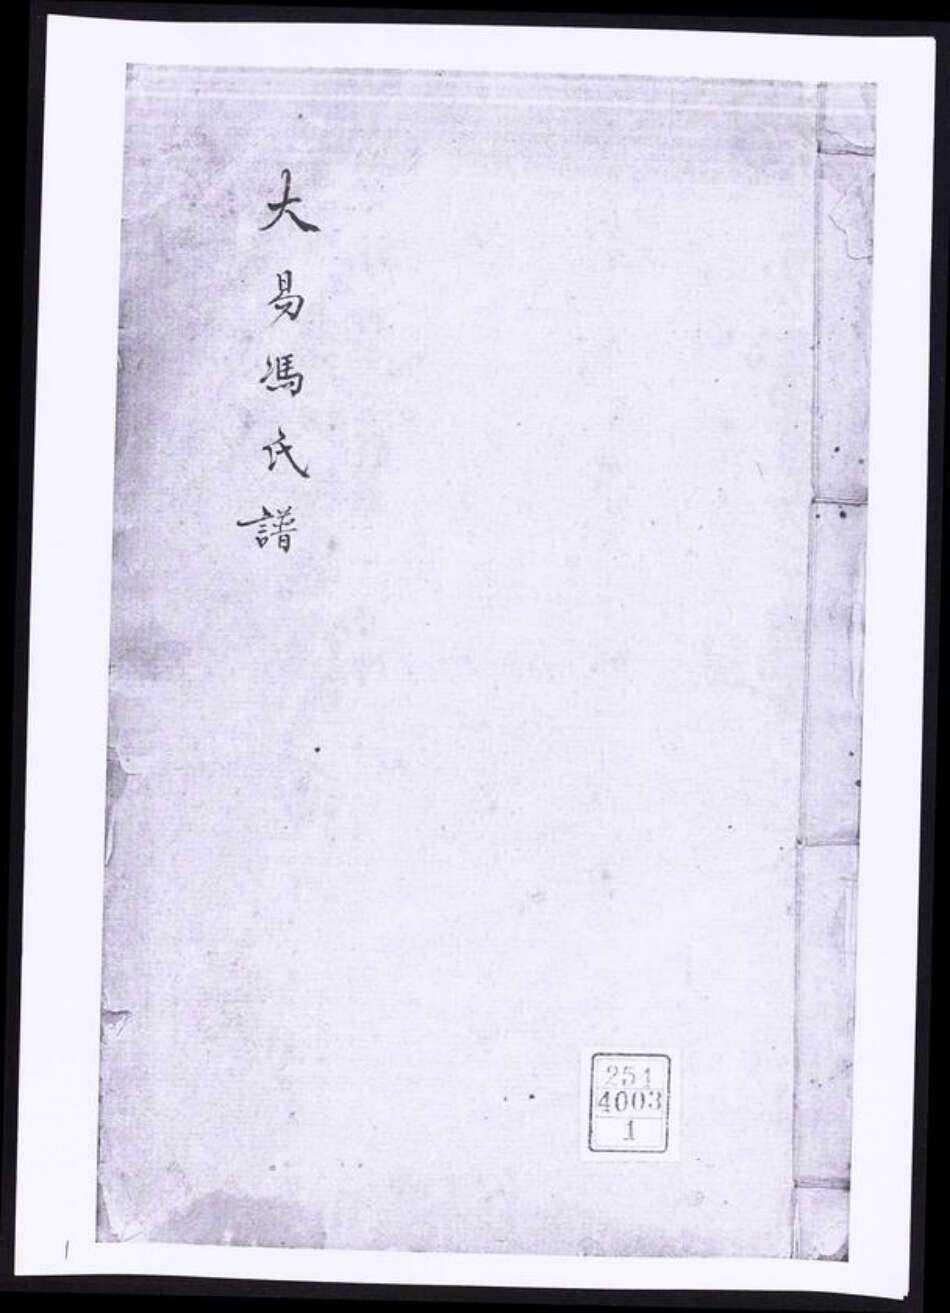 大易馮氏譜
254
4003
1